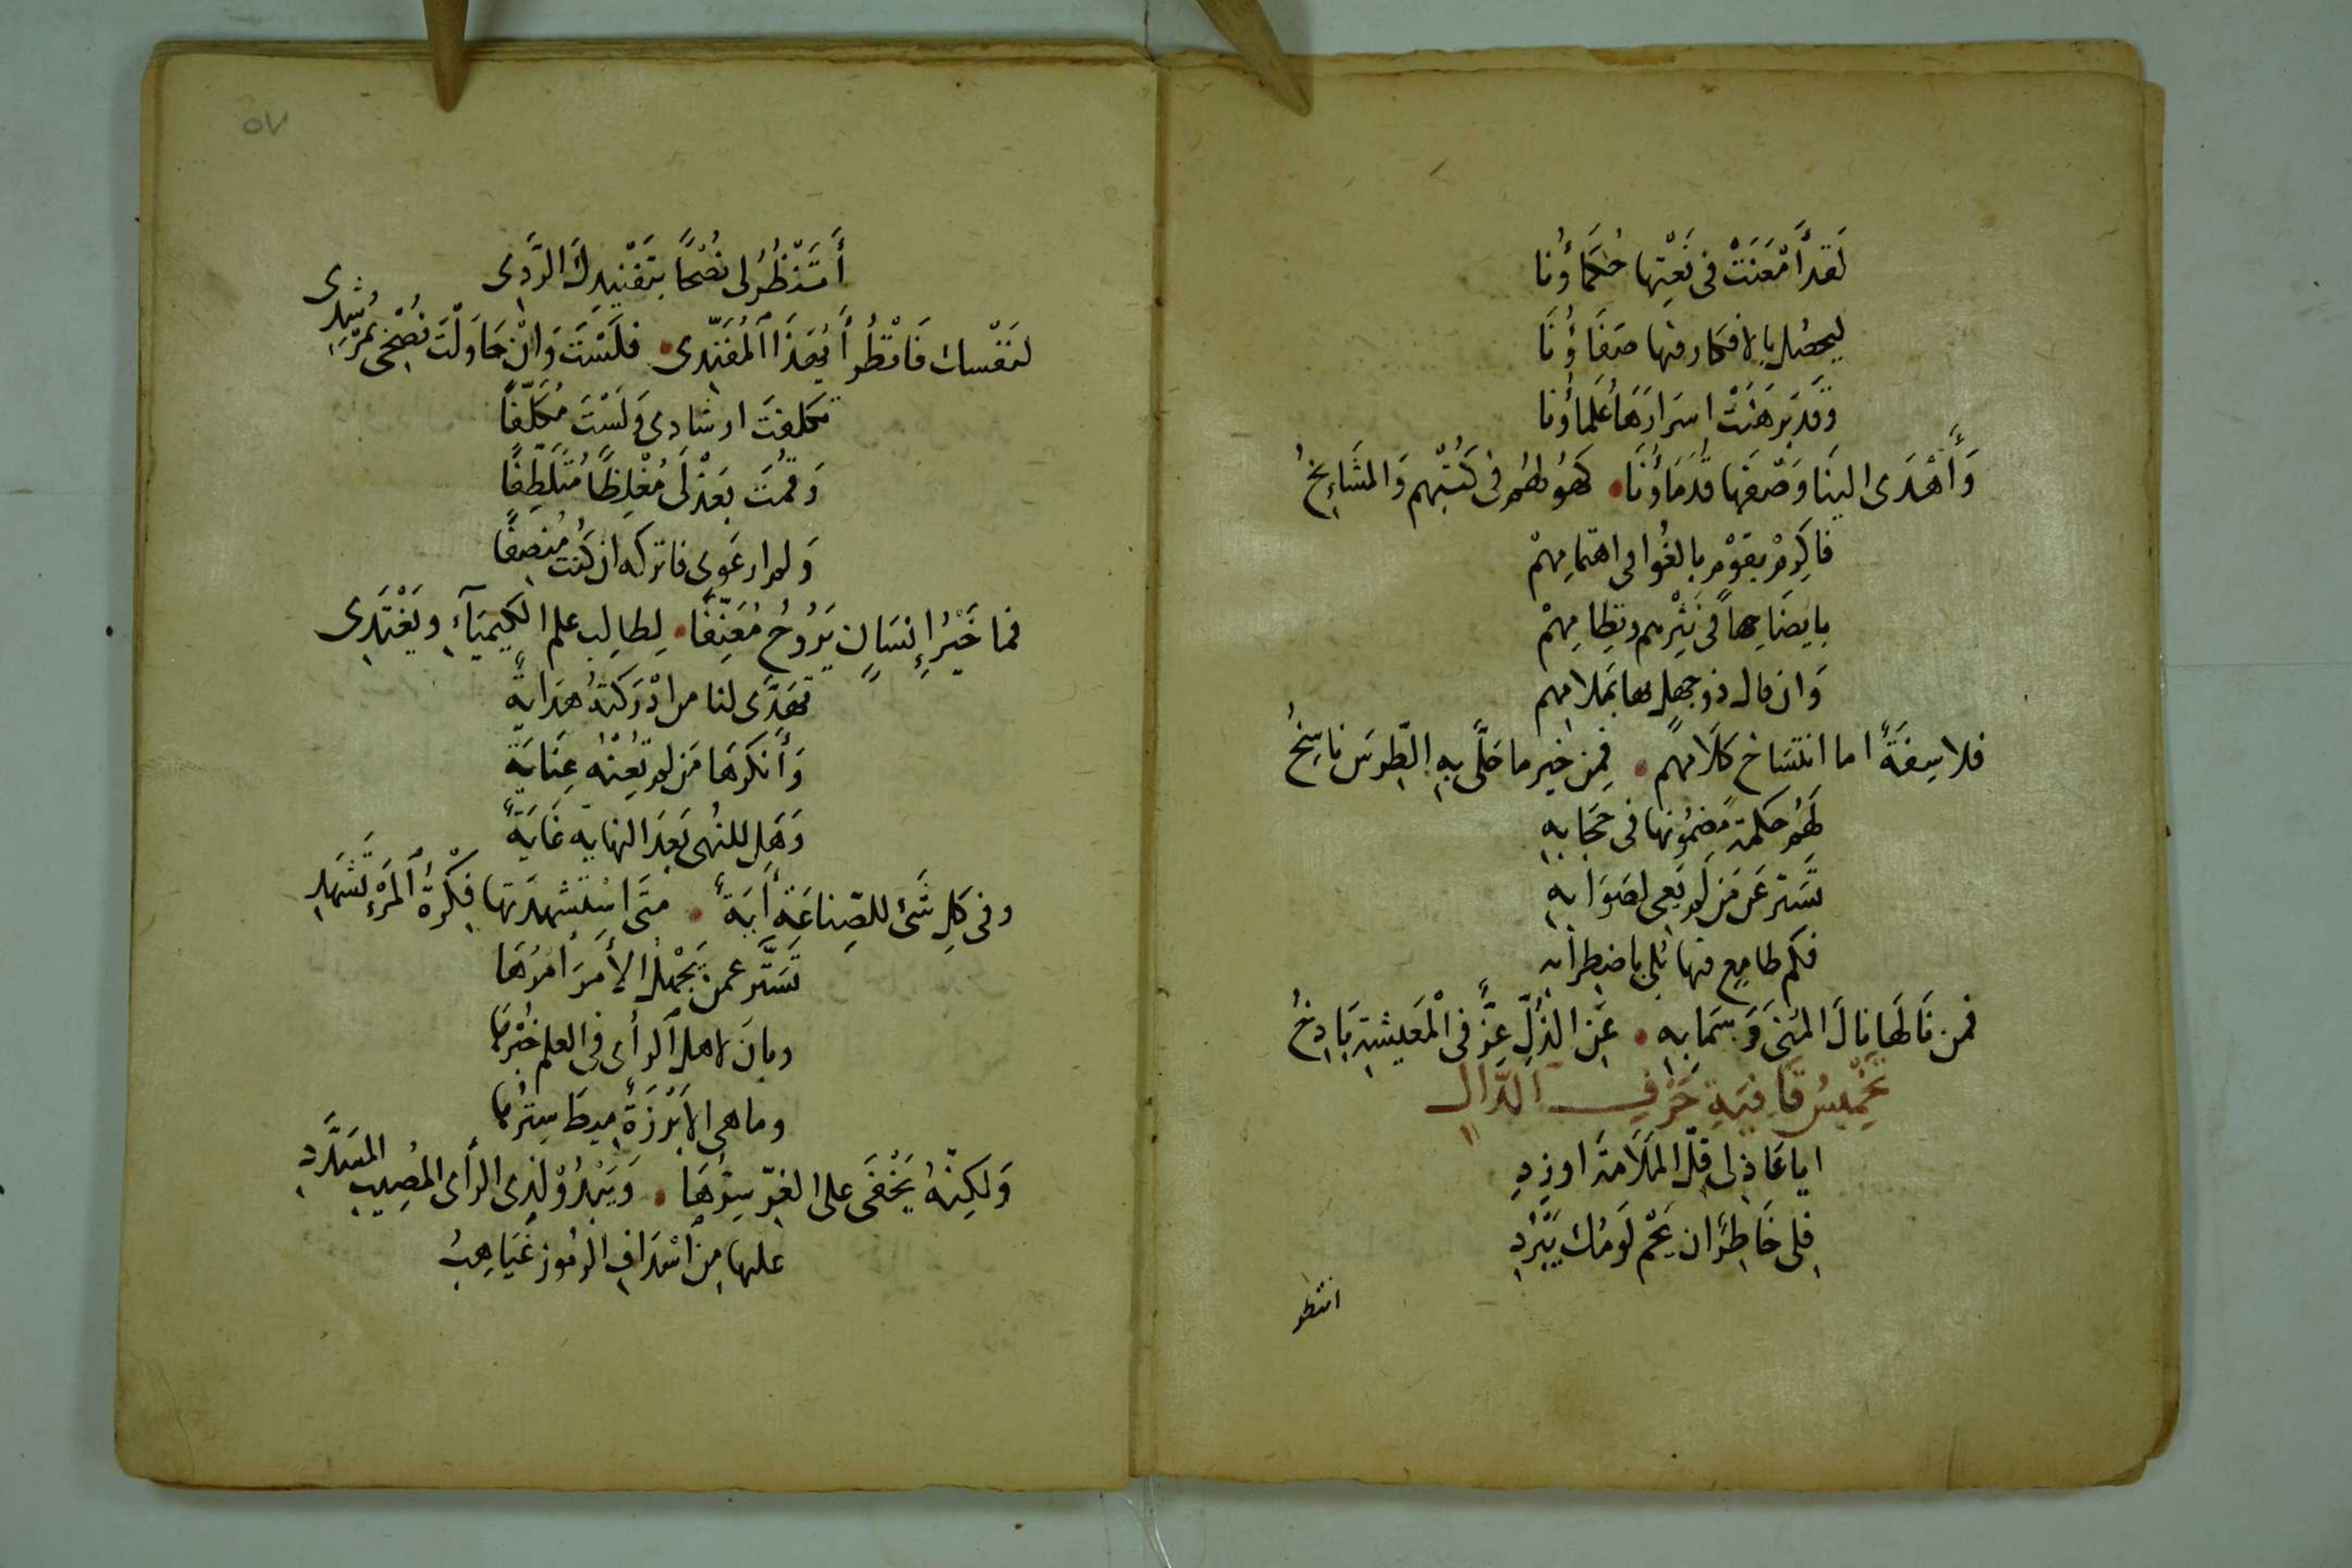 لَقَد أَمْعَنَتْ فى نَعْتِها حُكَمَاؤُنا
ليحصُل بالافكار منها صَفَاؤُنَا
وَقَد بَرهَنَتْ اسرَارَهَا عُلَماؤُنا
وَأَهْدَى الينَا وَصْفَها قُدَمَاؤُنَا • كَهُولهُم فى كُتْبهم وَالمَشَايِخُ
فاكرِمْ بقوْمٍ بالغُوا فى اهتمامِهمْ
بايضَاحِها فى نَثْرِهم ونِظامِهمْ
وَان قال ذو جهل بها بمَلامهم
فلاسِفَةٌ اما انتسَاخ كلَامهم • فمِن خير ما حَلَّى بهِ الطِّرسَ ناسِخُ
لَهُم حكمة مَضمُونها فى حجَابهِ
تسَتر عَن مَن لم يَعِى لصَوَابهِ
فكم طامِع منها بُلِى باضطرابه
فمن نَالَهَا نالَ المُنىَ وَسَمَا بهِ • عَنِ الذُلِّ عِزٌّ فى الْمَعيشةِ بَاذِخُ
تَخْمِيسُ قَافِيَةِ حَرْفِ الدَّالِ
ايا عَاذِلى قلّ المَلَامَة اوزِدِ
فلى خَاطِرٌ ان يَحْم لَومُك يَبْرُدِ
انتظر
٥٧
أَتَنْظُرُ لى نُصْحًا بتَفْنيدِكَ الرَّدِى
لنَفْسِك فَانْظُر أَيُّهَذَا المُفَنّدِى • فلَسْتَ وَانْ حَاوَلْتَ نُصْحِى بمُرْشِدِى
تكلفتَ ارشادى وَلَسْتَ مُكَلَّفًا
وَقمُتَ بعَذْلى مُغْلِظًا مُتَلَطِّفًا
وَلم ارعَوى فاتركه ان كُنت مُنصِفًا
فما خَيْرُ إِنسَانٍ يَرُوحُ مُعَنِّفًا • لِطالِب علم الكِيميَآءِ ويَغْتَدِى
تهَدَّى لنا من ادْرَكتهُ هدَايةٌ
وَأَنكرَهَا مَن لم تُعِنْهُ عِنَايَةٌ
وَهَل للنهُى بَعدَ النهاية غَايَةٌ
وفى كلِ شَئ للصِّناعَة أَيَةٌ • متَى اسْتَشْهدَتها فِكْرَةُ المَرْءِ تَشْهَدِ
تَسَتَّر عمن يَجْهَل الأَمرَ امرُهَا
وبانَ لاهل الرأى فى العلم خُبْرهَا
وما هى الا بَرْزَةٌ مِيطَ سِترُها
وَلكِنّهُ يَخْفَى على الغِرّ سِترُهَا • وَيَبْدُوْ لذى الرأى المُصِيبِ المسَدَّدِ
عليها مِنَ اسْدَافِ الرمُوز غَيَاهِبُ